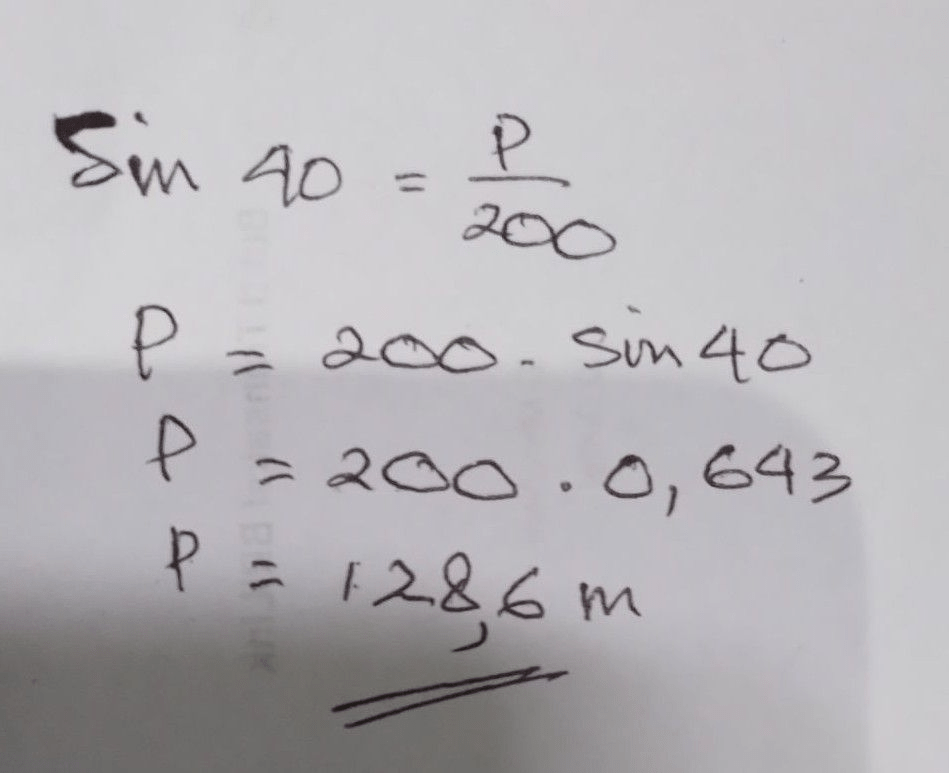 Sin 40 = P/200
P = 200 . Sin 40
P = 200 . 0,643
P = 128,6 m